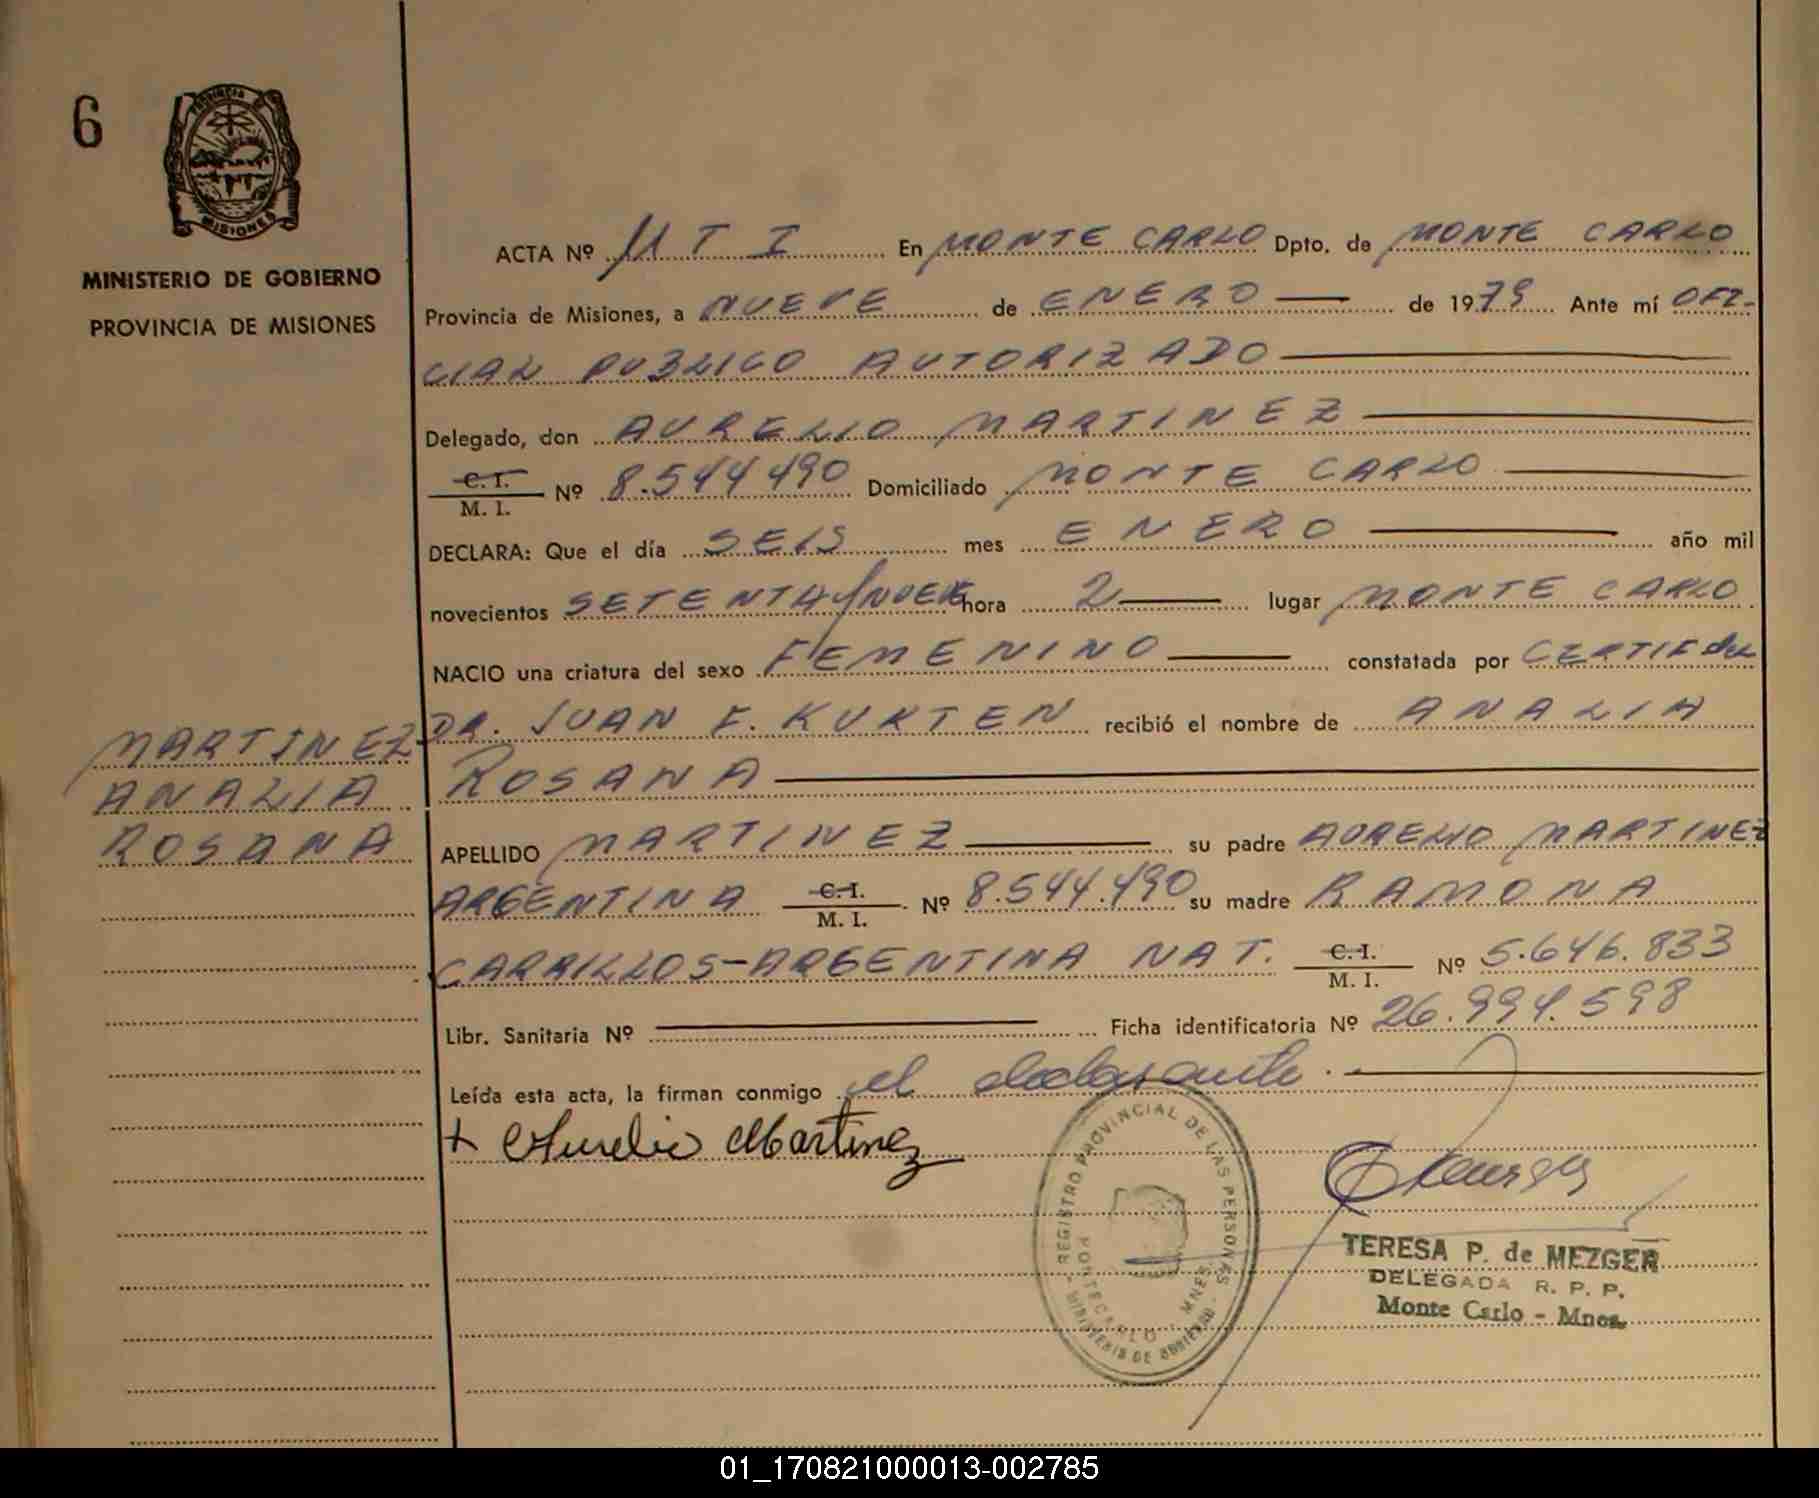 6
PROVINCIA DE
MISIONES
MINISTERIO DE GOBIERNO
PROVINCIA DE MISIONES
ACTA Nº M T I En MONTE CARLO Dpto. de MONTE CARLO
Provincia de Misiones, a NUEVE de ENERO de 1979 Ante mí OFI-
CIAL PUBLICO AUTORIZADO
Delegado, don AURELIO MARTINEZ
C. I.
M. I. Nº 8.544 490 Domiciliado MONTE CARLO
DECLARA: Que el día SEIS mes ENERO año mil
novecientos SETENTA Y NUEVE hora 2 lugar MONTE CARLO
NACIO una criatura del sexo FEMENINO constatada por CERTIF del
DR. JUAN F. KURTEN recibió el nombre de ANALIA
ROSANA
MARTINEZ
ANALIA
ROSANA
APELLIDO MARTINEZ su padre AURELIO MARTINEZ
ARGENTINA C. I. M. I. Nº 8.544.490 su madre RAMONA
CARRILLOS-ARGENTINA NAT. C. I. M. I. Nº 5.646.833
Libr. Sanitaria Nº Ficha identificatoria Nº 26.994.598
Leída esta acta, la firman conmigo el declarante.
+ Aurelio Martinez
REGISTRO PROVINCIAL DE LAS PERSONAS
MONTECARLO - MNES.
MINISTERIO DE GOBIERNO
TERESA P. de MEZGER
DELEGADA R. P. P.
Monte Carlo - Mnes.
01_170821000013-002785